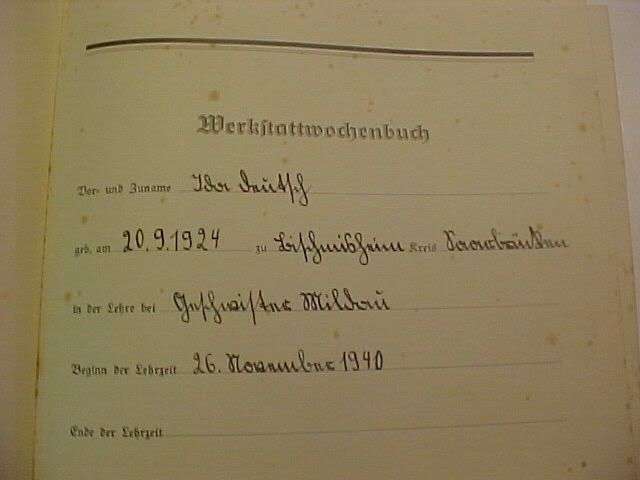 Werkstattwochenbuch
Vor- und Zuname Ida Deutsch
geb. am 20.9.1924 zu Bischmisheim Kreis Saarbrücken
in der Lehre bei Geschwister Mildau
Beginn der Lehrzeit 26. November 1940
Ende der Lehrzeit